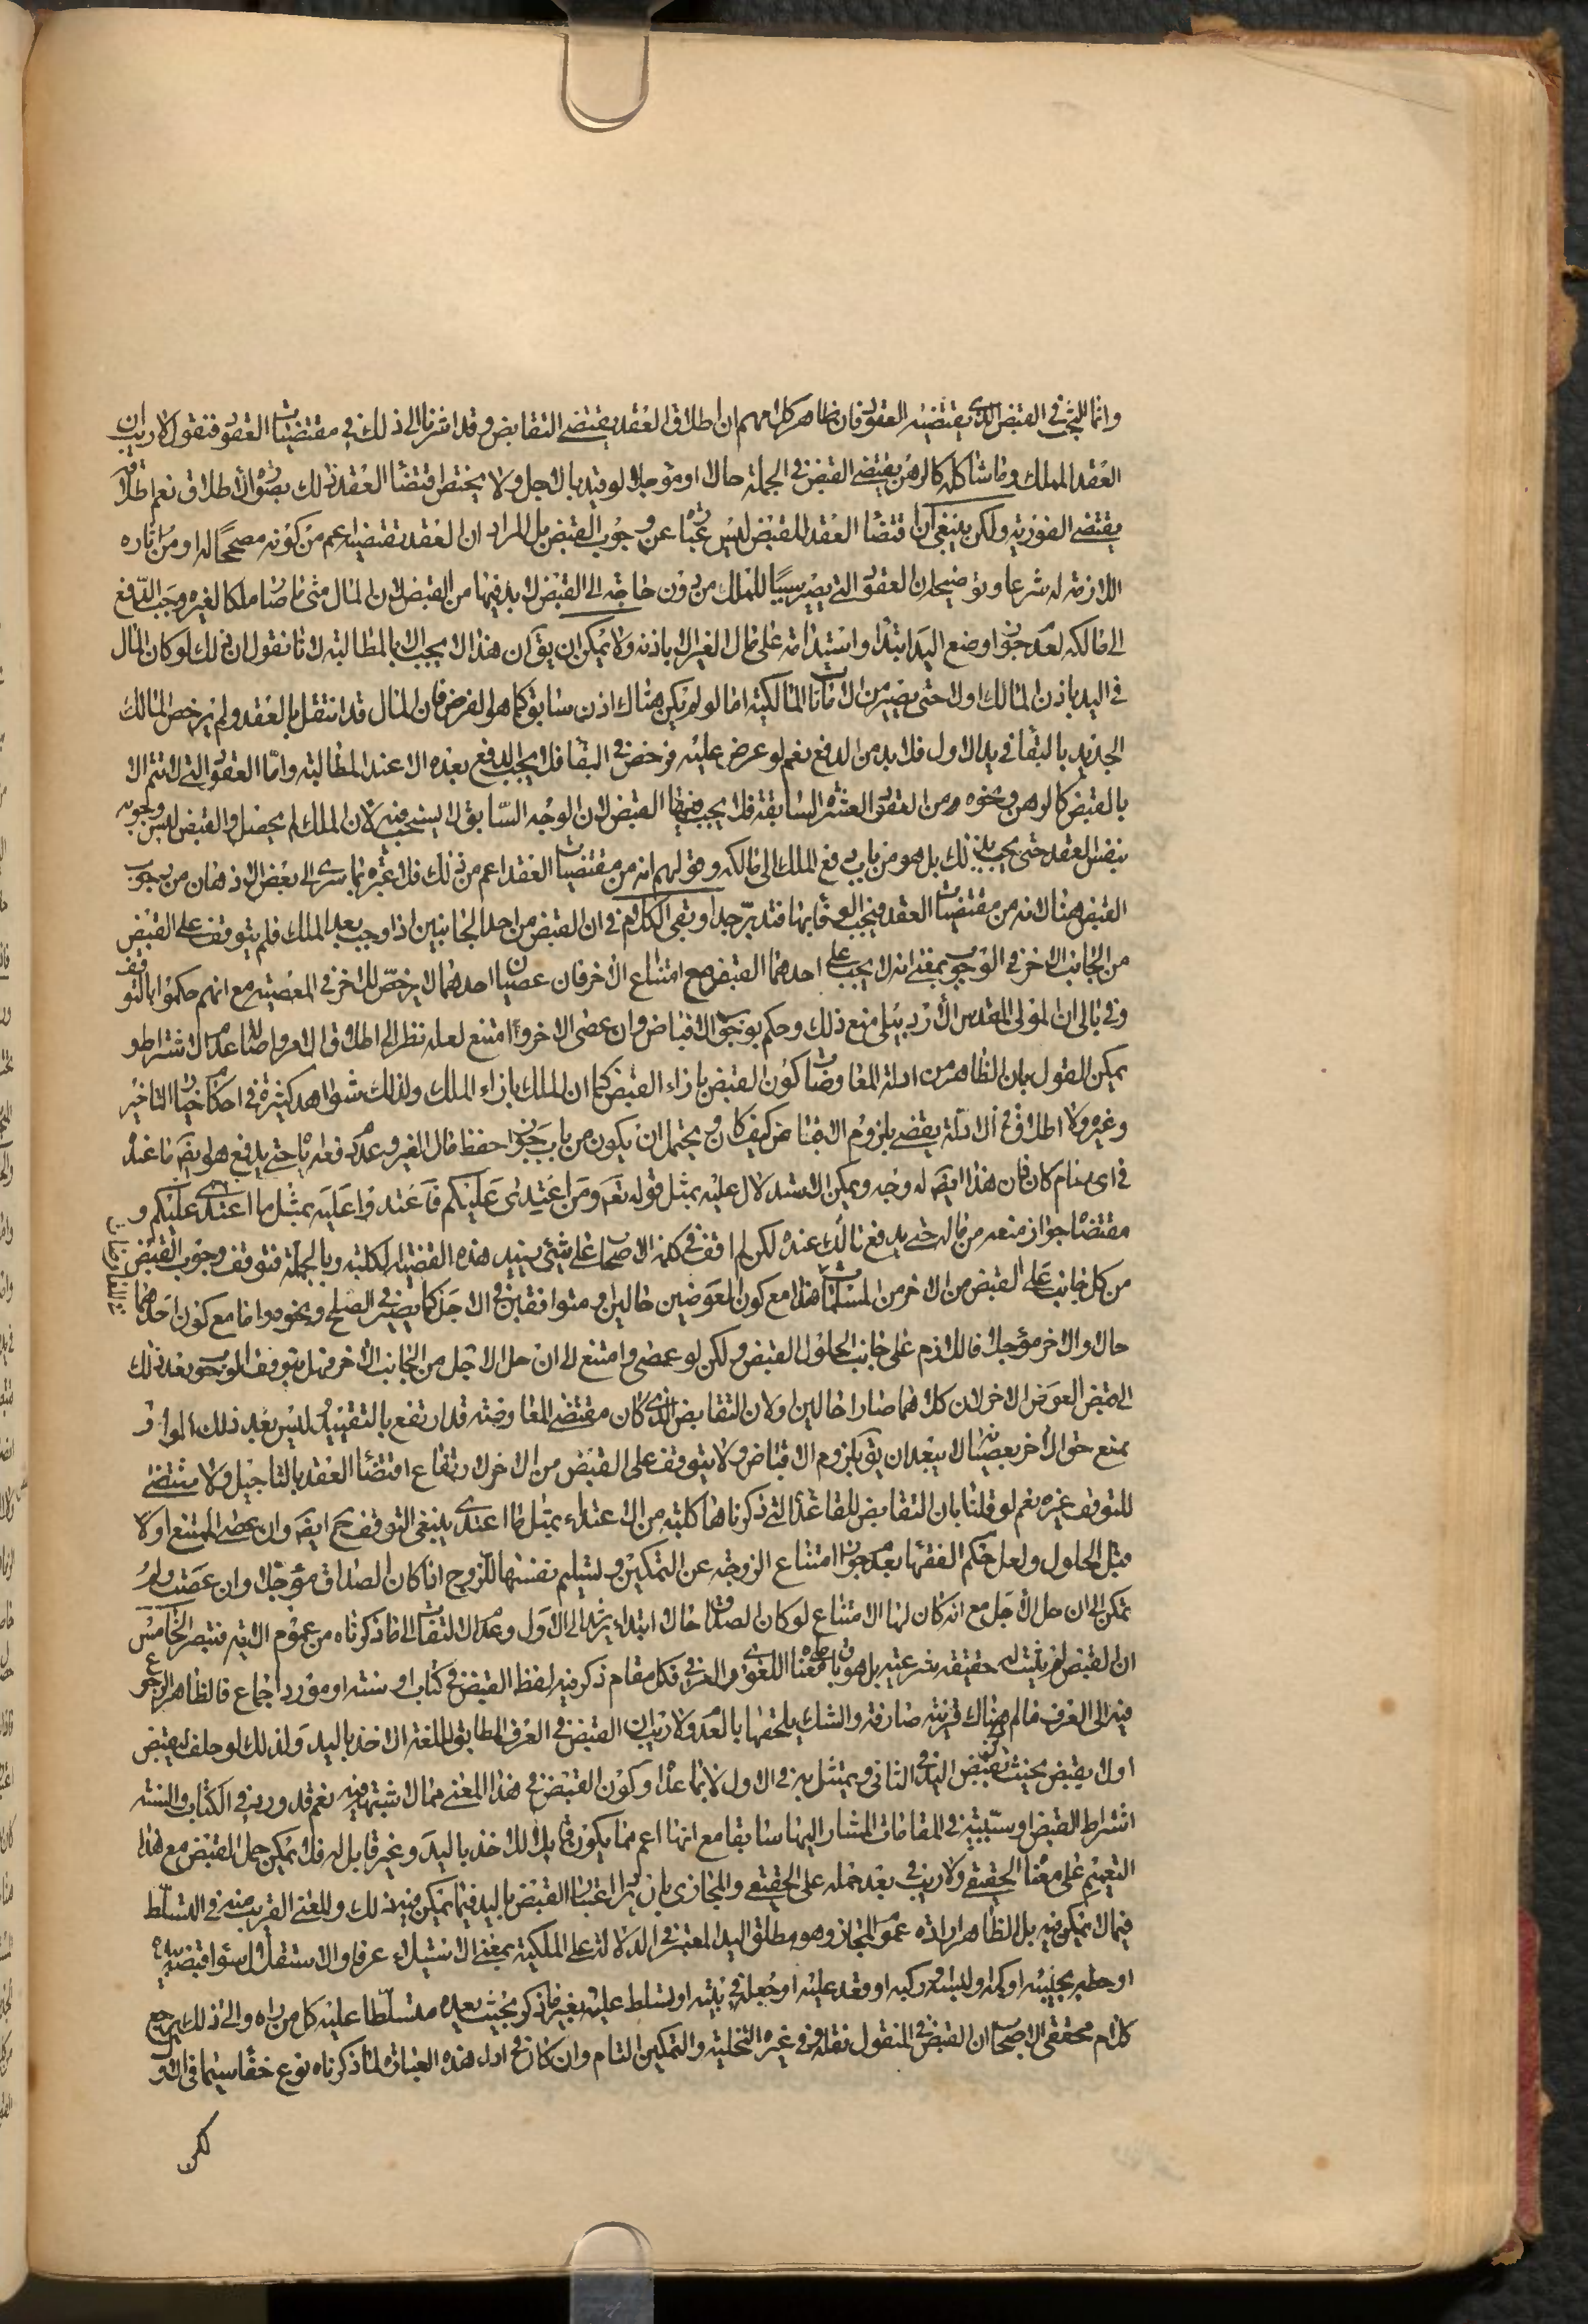 وانما البحث في القبض الذي يقتضيه العقود فان ظاهر كلامهم ان اطلاق العقد يقتضي التقابض وقد اشرنا الى ذلك في مقتضيات العقود فنقول لا ريب ان
العقد المملك وما شاكله كالرهن يقتضي القبض في الجملة حالا او مؤجلا لو قيد بالاجل ولا يختص اقتضاء العقد ذلك بصورة الاطلاق نعم اطلاقه
يقتضي الفورية ولكن ينبغي ان اقتضاء العقد للقبض ليس عبارة عن وجوب القبض بل المراد ان العقد يقتضيه اعم من كونه مصححا له او من اثاره
اللازمة له شرعا وتوضيحه ان العقود التي يصير سببا للملك من دون حاجة الى القبض لا بد فيها من القبض لان المال متى ما صار ملكا لغيره وجب الدفع
الى مالكه لعدم جواز وضع اليد ابتداء واستدامة على مال الغير الا باذنه ولا يمكن ان يق ان هذا لا يجب الا بالمطالبة لانا نقول ان ذلك لو كان المال
في اليد باذن المالك اولا حتى يصير من الامانات المالكية اما لو لم يكن هناك اذن سابق كما هو الفرض فان المال قد انتقل بالعقد ولم يرخص المالك
الجديد بالبقاء في يد الاول فلا بد من الدفع نعم لو عرض عليه فرخص في البقاء فلا يجب الدفع بعده الا عند المطالبة واما العقود التي لا تتم الا
بالقبض كالرهن ونحوه من العقود العشرة السابقة فلا يجب فيها القبض لان الوجه السابق لا ينسحب فيه لان الملك لم يحصل والقبض ليس وجوبه
بنفس العقد حتى يجب بذلك بل هو من باب دفع الملك الى مالكه وقولهم انه من مقتضيات العقد اعم من ذلك فلا عبرة بما سرى الى بعض الاذهان من وجوب
القبض هناك لانه من مقتضيات العقد فيجب الوفاء بها فتدبر جدا وبقي الكلام في ان القبض من احد الجانبين اذا وجب بعد الملك فلم يتوقف على القبض
من الجانب الاخر في الوجوب بمعنى انه لا يجب على احدهما القبض مع امتناع الاخر فان عصيان احدهما لا يرخص للاخر في المعصية مع انهم حكموا بالتوقف
وفي بالي ان المولى المقدس الاردبيلي منع ذلك وحكم بوجوب الاقباض وان عصى الاخر وامتنع لعله نظر الى اطلاق الامر واصالة عدم الاشتراط و
يمكن القول بان الظاهر من ادلة المعاوضات كون القبض بازاء القبض كما ان الملك بازاء الملك ولذلك شواهد كثيرة في احكام خيار التاخير
وغيره ولا اطلاق في الادلة يقضي بلزوم الاقباض كيف كان ويحتمل ان يكون من باب جواز حفظ مال الغير وعدم دفعه اليه حتى يدفع هو ايضا ما عنده
في اي مقام كان فان هذا ايضا له وجه ويمكن الاستدلال عليه بمثل قوله تع ومن اعتدى عليكم فاعتدوا عليه بمثل ما اعتدى عليكم و
مقتضاه جواز منعه من ماله حتى يدفع ذلك عنده لكن لم اقف في كلمة الاصحاب على شيء يفيد هذه القضية الكلية وبالجملة فتوقف وجوب القبض
من كل جانب على القبض من الاخر من المسلمات هذا مع كون العوضين حالين او متوافقين في الاجل كما يصير في الصلح ونحوه واما مع كون احدهما
حالا والاخر مؤجلا فاللازم على جانب الحلول القبض ولكن لو عصى وامتنع الى ان حل الاجل من الجانب الاخر فهل يتوقف الوجوب بعد ذلك
الى قبض العوض الاخر لان كلاهما صارا حالين او لان التقابض الذي كان مقتضى المعاوضة قد ارتفع بالتقييد ليس بعد ذلك الا الوارد
بمنع حق الاخر بعصيانه لا يبعدان يق بلزوم الاقباض ولا يتوقف على القبض من الاخر لارتفاع اقتضاء العقد بالتاجيل ولا مقتضى
للتوقف غيره نعم لو قلنا بان التقابض للقاعدة التي ذكرناها كلية من الاعتداء بمثل ما اعتدى ينبغي التوقف ح ايضا وان عصى الممتنع اولا
قبل الحلول ولعل حكم الفقهاء بعدم جواز امتناع الزوجة عن التمكين وتسليم نفسها للزوج اذا كان الصداق مؤجلا وان عصت ولم
تمكن الى ان حل الاجل مع انه كان لها الامتناع لو كان الصداق حالا ابتداء يرشد الى الاول وعدم الالتفات الى ما ذكرناه من عموم الاية فتبصر الخامس
ان القبض لم يثبت له حقيقة شرعية بل هو باق على معناه اللغوي والعرفي فكل مقام ذكر فيه لفظ القبض في كتاب او سنة او مورد اجماع فالظاهر الرجوع
فيه الى العرف ما لم يكن هناك قرينة صارفة والشك يلحقها بالعدم ولا ريب ان القبض في العرف المطابق للغة الاخذ باليد ولذلك لو حلف ليقبض
او لا يقبض يحنث بقبض اليد في الثاني ويمتثل به في الاول لا بما عداه وكون القبض في هذا المعنى مما لا شبهة فيه نعم قد ورد في الكتاب والسنة
اشتراط القبض او سببيته في المقامات المشار اليها سابقا مع انها اعم مما يكون قابلا للاخذ باليد وغير قابل له فلا يمكن حمل القبض مع هذا
التعميم على معناه الحقيقي ولا ريب في بعد حمله على الحقيقي والمجازي بان يراد اعتبار القبض باليد فيما يمكن فيه ذلك والمعنى القريب منه في التسلط
فيما لا يمكن فيه بل الظاهر ارادة عموم المجاز وهو مطلق اليد المعتبر في الدلالة على الملكية بمعنى الاستيلاء عرفا والاستقلال سواء قبضه بيده
او حطه بجيبه او كمه ولبسه وركبه او قعد عليه او جعله في بيته او تسلط عليه بغير ما ذكر بحيث يعده متسلطا عليه كل من يراه والى ذلك يرجع
كلام محققي الاصحاب ان القبض في المنقول نقله وفي غيره التخلية والتمكين التام وان كان في اداء هذه العبارة لما ذكرناه نوع خفاء سيما في الاول
لكن